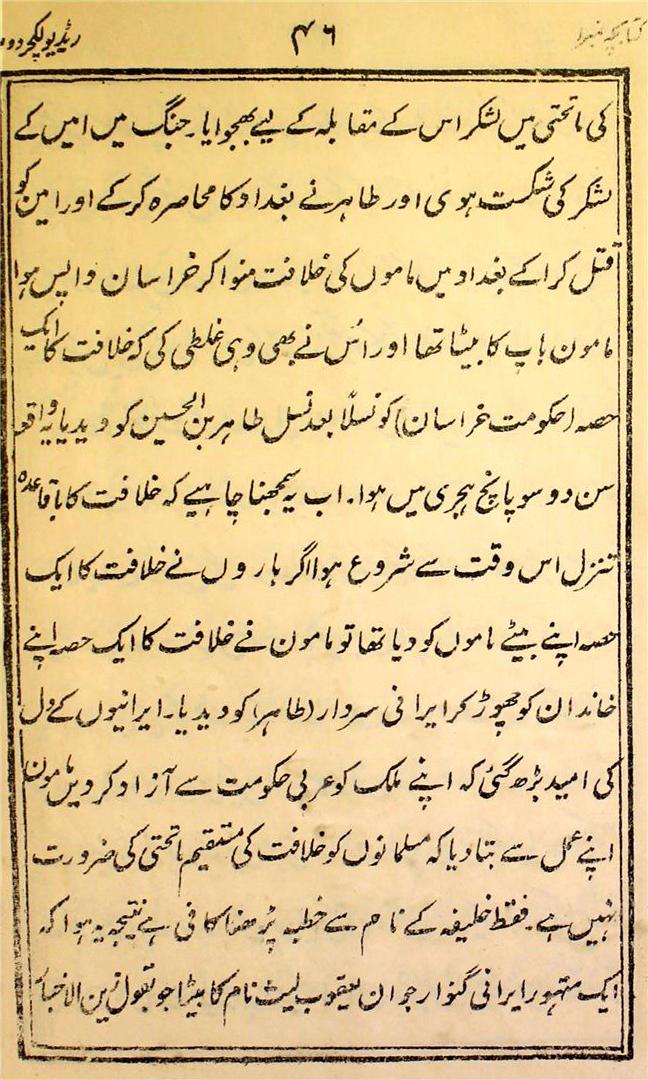 کتابچہ نمبرا ۴۶ ریڈیو لیکچر دوم
کی ماتحتی میں لشکر اس کے مقابلہ کے لیے بھجوایا۔ جنگ میں امین کے
لشکر کی شکست ہوی اور طاہر نے بغداد کا محاصرہ کرکے اور امین کو
قتل کراکے بغداد میں ماموں کی خلافت منوا کر خراسان واپس ہوا
مامون باپ کا بیٹا تھا اور اُس نے بھی وہی غلطی کی کہ خلافت کا ایک
حصہ (حکومت خراسان) کو نسلًا بعد نسل طاہر بن الحسین کو دیدیا یہ واقعہ
سن دو سو پانچ ہجری میں ہوا۔ اب یہ سمجھنا چاہیے کہ خلافت کا باقاعدہ
تنزل اس وقت سے شروع ہوا اگر ہاروں نے خلافت کا ایک
حصہ اپنے بیٹے ماموں کو دیا تھا تو مامون نے خلافت کا ایک حصہ اپنے
خاندان کو چھوڑ کر ایرانی سردار (طاہر) کو دیدیا۔ ایرانیوں کے دل
کی امید بڑھ گئی کہ اپنے ملک کو عربی حکومت سے آزاد کردیں مامون
اپنے عمل سے بتادیا کہ مسلمانوں کو خلافت کی مستقیم ماتحتی کی ضرورت
نہیں ہے۔ فقط خلیفہ کے نام سے خطبہ پڑھنا کافی ہے نتیجہ یہ ہوا کہ
ایک متہور ایرانی گنوار جوان یعقوب لیث نام کا بیٹا جو بقول زین الاخبار